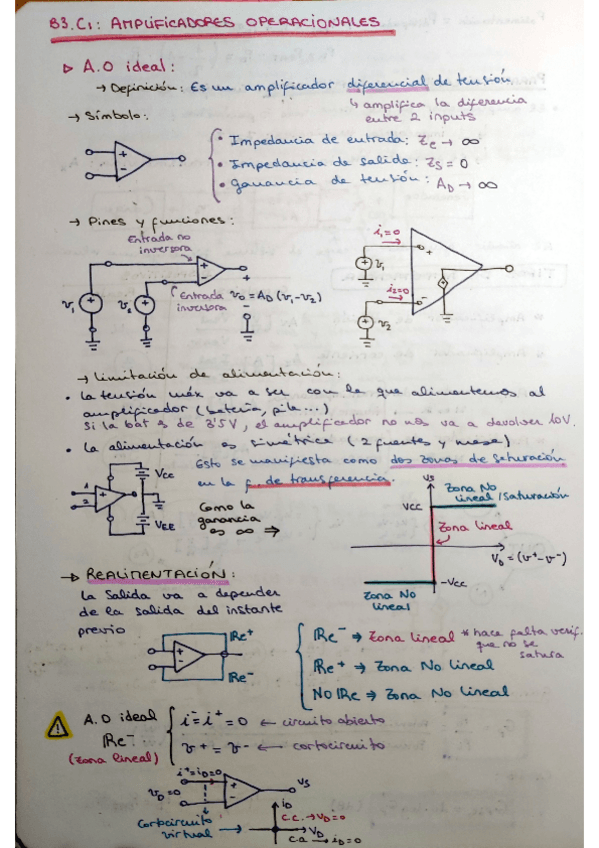 B3.C1: AMPLIFICADORES OPERACIONALES
▷ A.O ideal:
→ Definición: Es un amplificador diferencial de tensión
↳ amplifica la diferencia
entre 2 inputs
→ Símbolo:
• Impedancia de entrada: Ze → ∞
• Impedancia de salida: Zs = 0
• Ganancia de tensión: AD → ∞
→ Pines y funciones:
Entrada no
inversora
Entrada
inversora
v0 = AD (v1-v2)
v1
v2
i1=0
v1
i2=0
v2
→ Limitación de alimentación:
• La tensión máx va a ser con la que alimentemos al
amplificador (batería, pila...)
Si la bat es de 3'5V, el amplificador no nos va a devolver 10V.
• La alimentación es simétrica (2 fuentes y masa)
Esto se manifiesta como dos zonas de saturación
en la f. de transferencia.
1
2
Vcc
VEE
Como la
ganancia
es ∞ ⇒
vs
Zona No
lineal/Saturación
Vcc
Zona lineal
VD = (v+-v-)
-Vcc
Zona No
lineal
→ REALIMENTACIÓN:
La salida va a depender
de la salida del instante
previo
Re+
Re-
Re- → Zona lineal * hace falta verif.
que no se
satura
Re+ → Zona No lineal
No Re → Zona No lineal
A.O ideal
Re-
(zona lineal)
i- = i+ = 0 ← circuito abierto
v+ = v- ← cortocircuito
i+=iD=0
vD=0
vs
Cortocircuito
virtual
iD
C.C. → vD=0
vD
C.a → iD=0